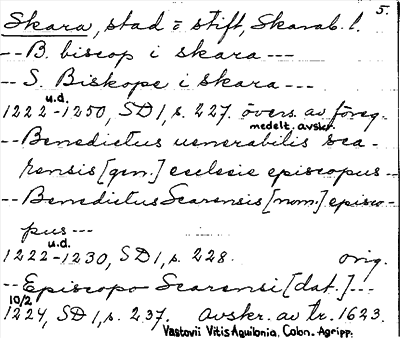 5.
Skara, stad o stift, Skarab. l.
-- B. biscop i skara ---
-- S. Biskope i skara ---
u.d.
1222-1250, SD 1, s. 227. övers. av föreg.
medelt. avskr.
-- Benedictus uenerabilis sca-
rensis [gen.] ecclesie episcopus --
-- Benedictus Scarensis [nom.] episco-
pus ---
u.d.
1222-1230, SD 1, s. 228. orig.
-- Episcopo Scarensi [dat.] ---
10/2
1224, SD 1, s. 237. avskr. av tr. 1623.
Vastovii Vitis Aquilonia. Colon. Agripp.